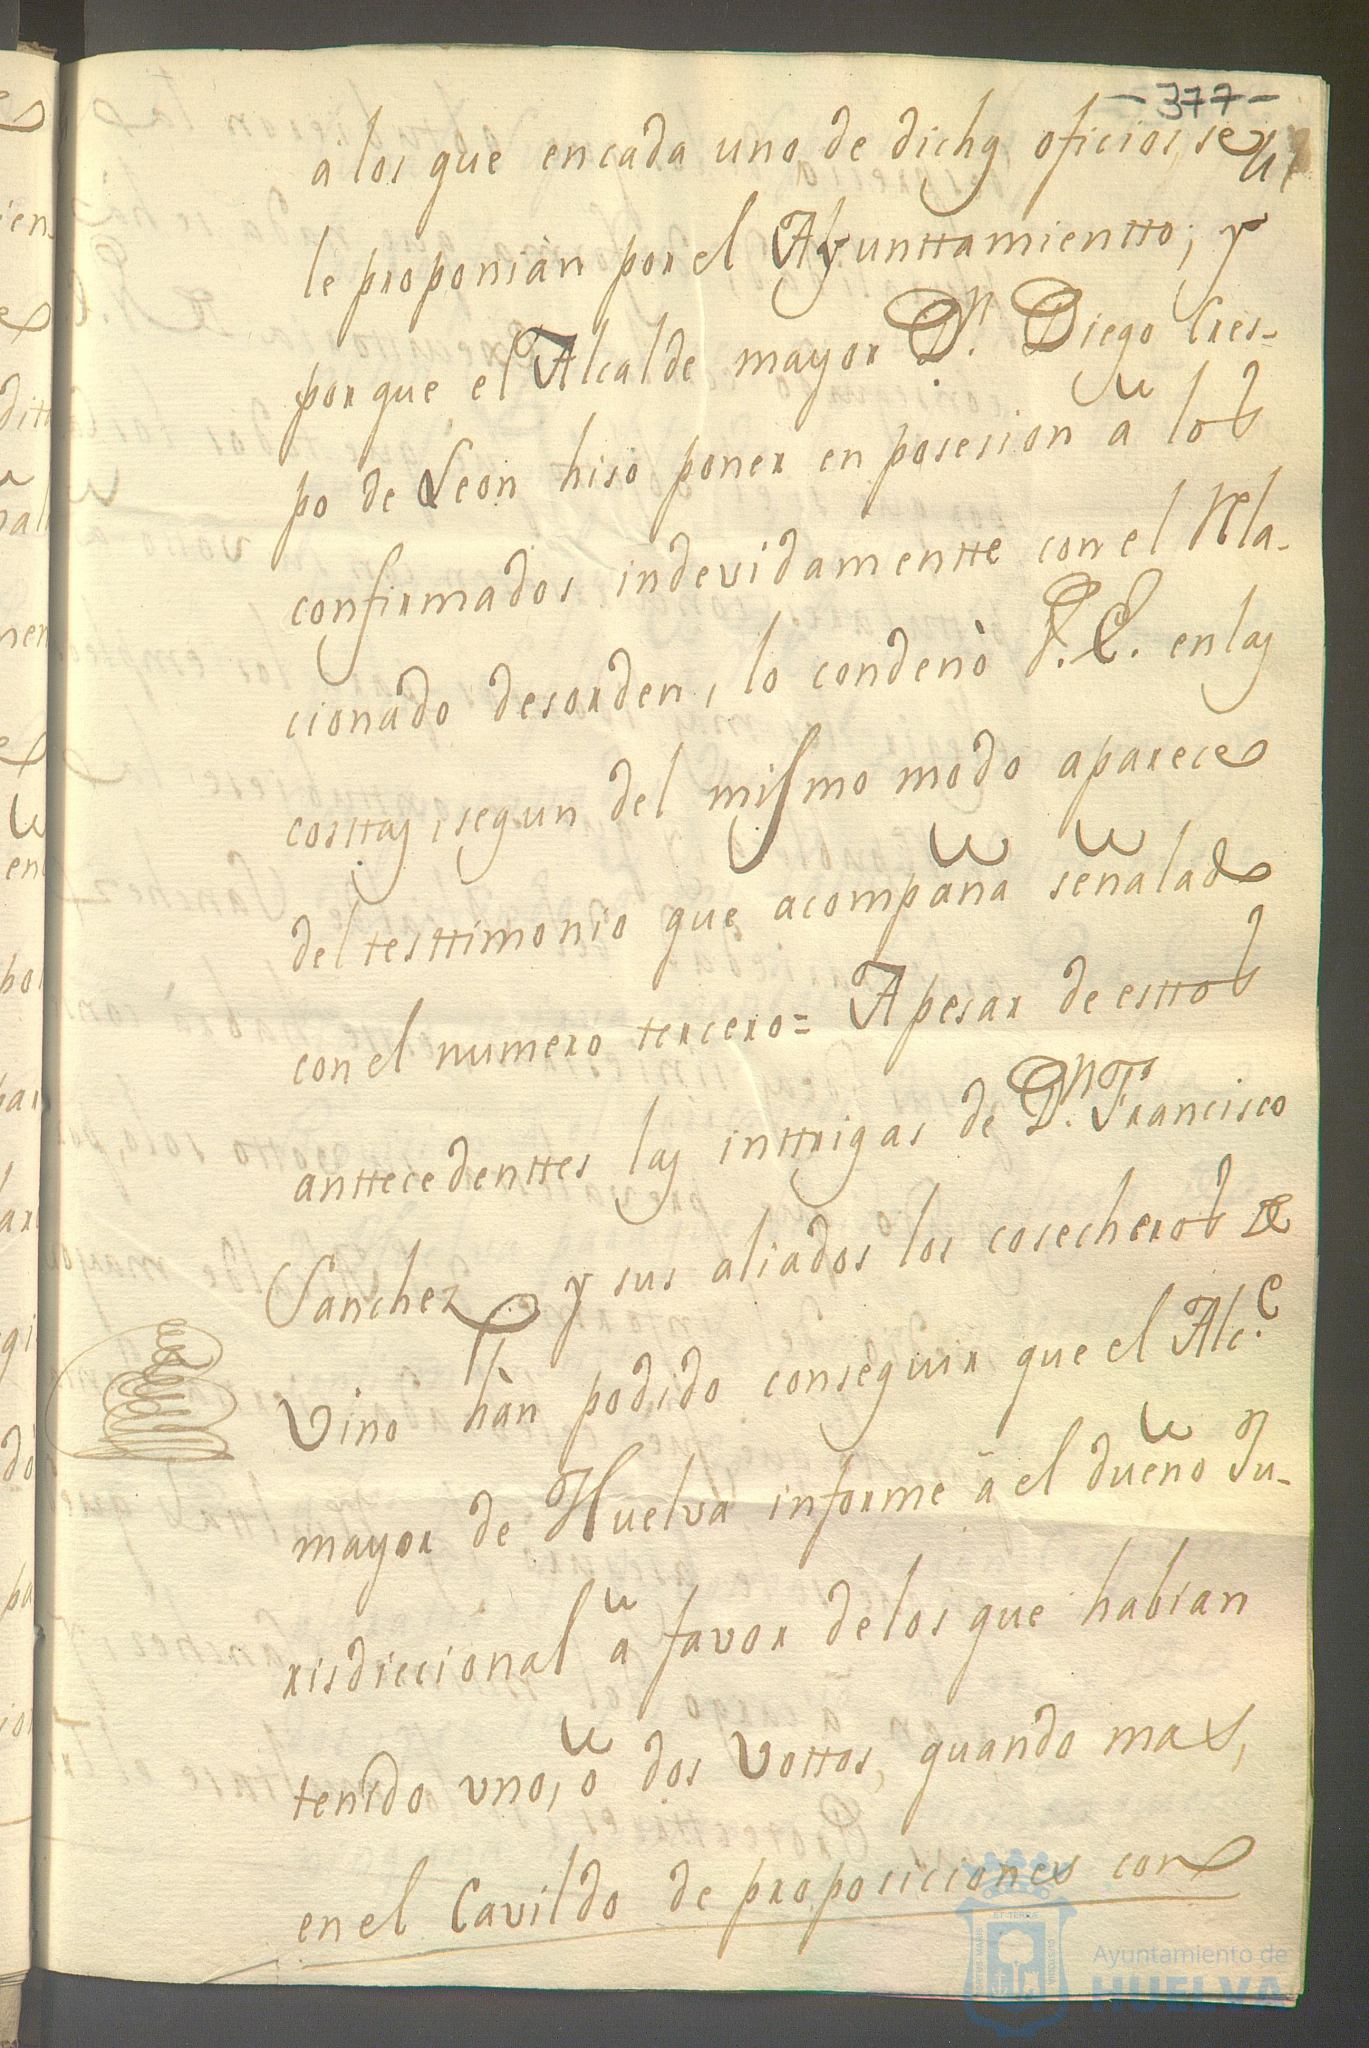 -377-
a los que en cada uno de dichos oficios, se
le proponian por el Ayunttamientto; y
porque el Alcalde mayor Dn. Diego Cres-
po de Leon hiso poner en posesion â los
confirmados indevidamentte con el Rela-
cionado desorden, lo condenò V.E. en las
costtas, segun del mismo modo aparece
del testtimonio que acompaña señalado
con el numero tercero= A pesar de esttos
anttecedenttes las inttrigas de Dn. Francisco
Sanchez y sus aliados los cosecheros de
Vino hàn podido conseguir que el Alc.e
mayor de Huelva informe â el dueño Ju-
risdiccional â favor de los que habian
tenido uno, ô dos Vottos, quando mas,
en el Cavildo de proposiciones con
Ayuntamiento de
HUELVA